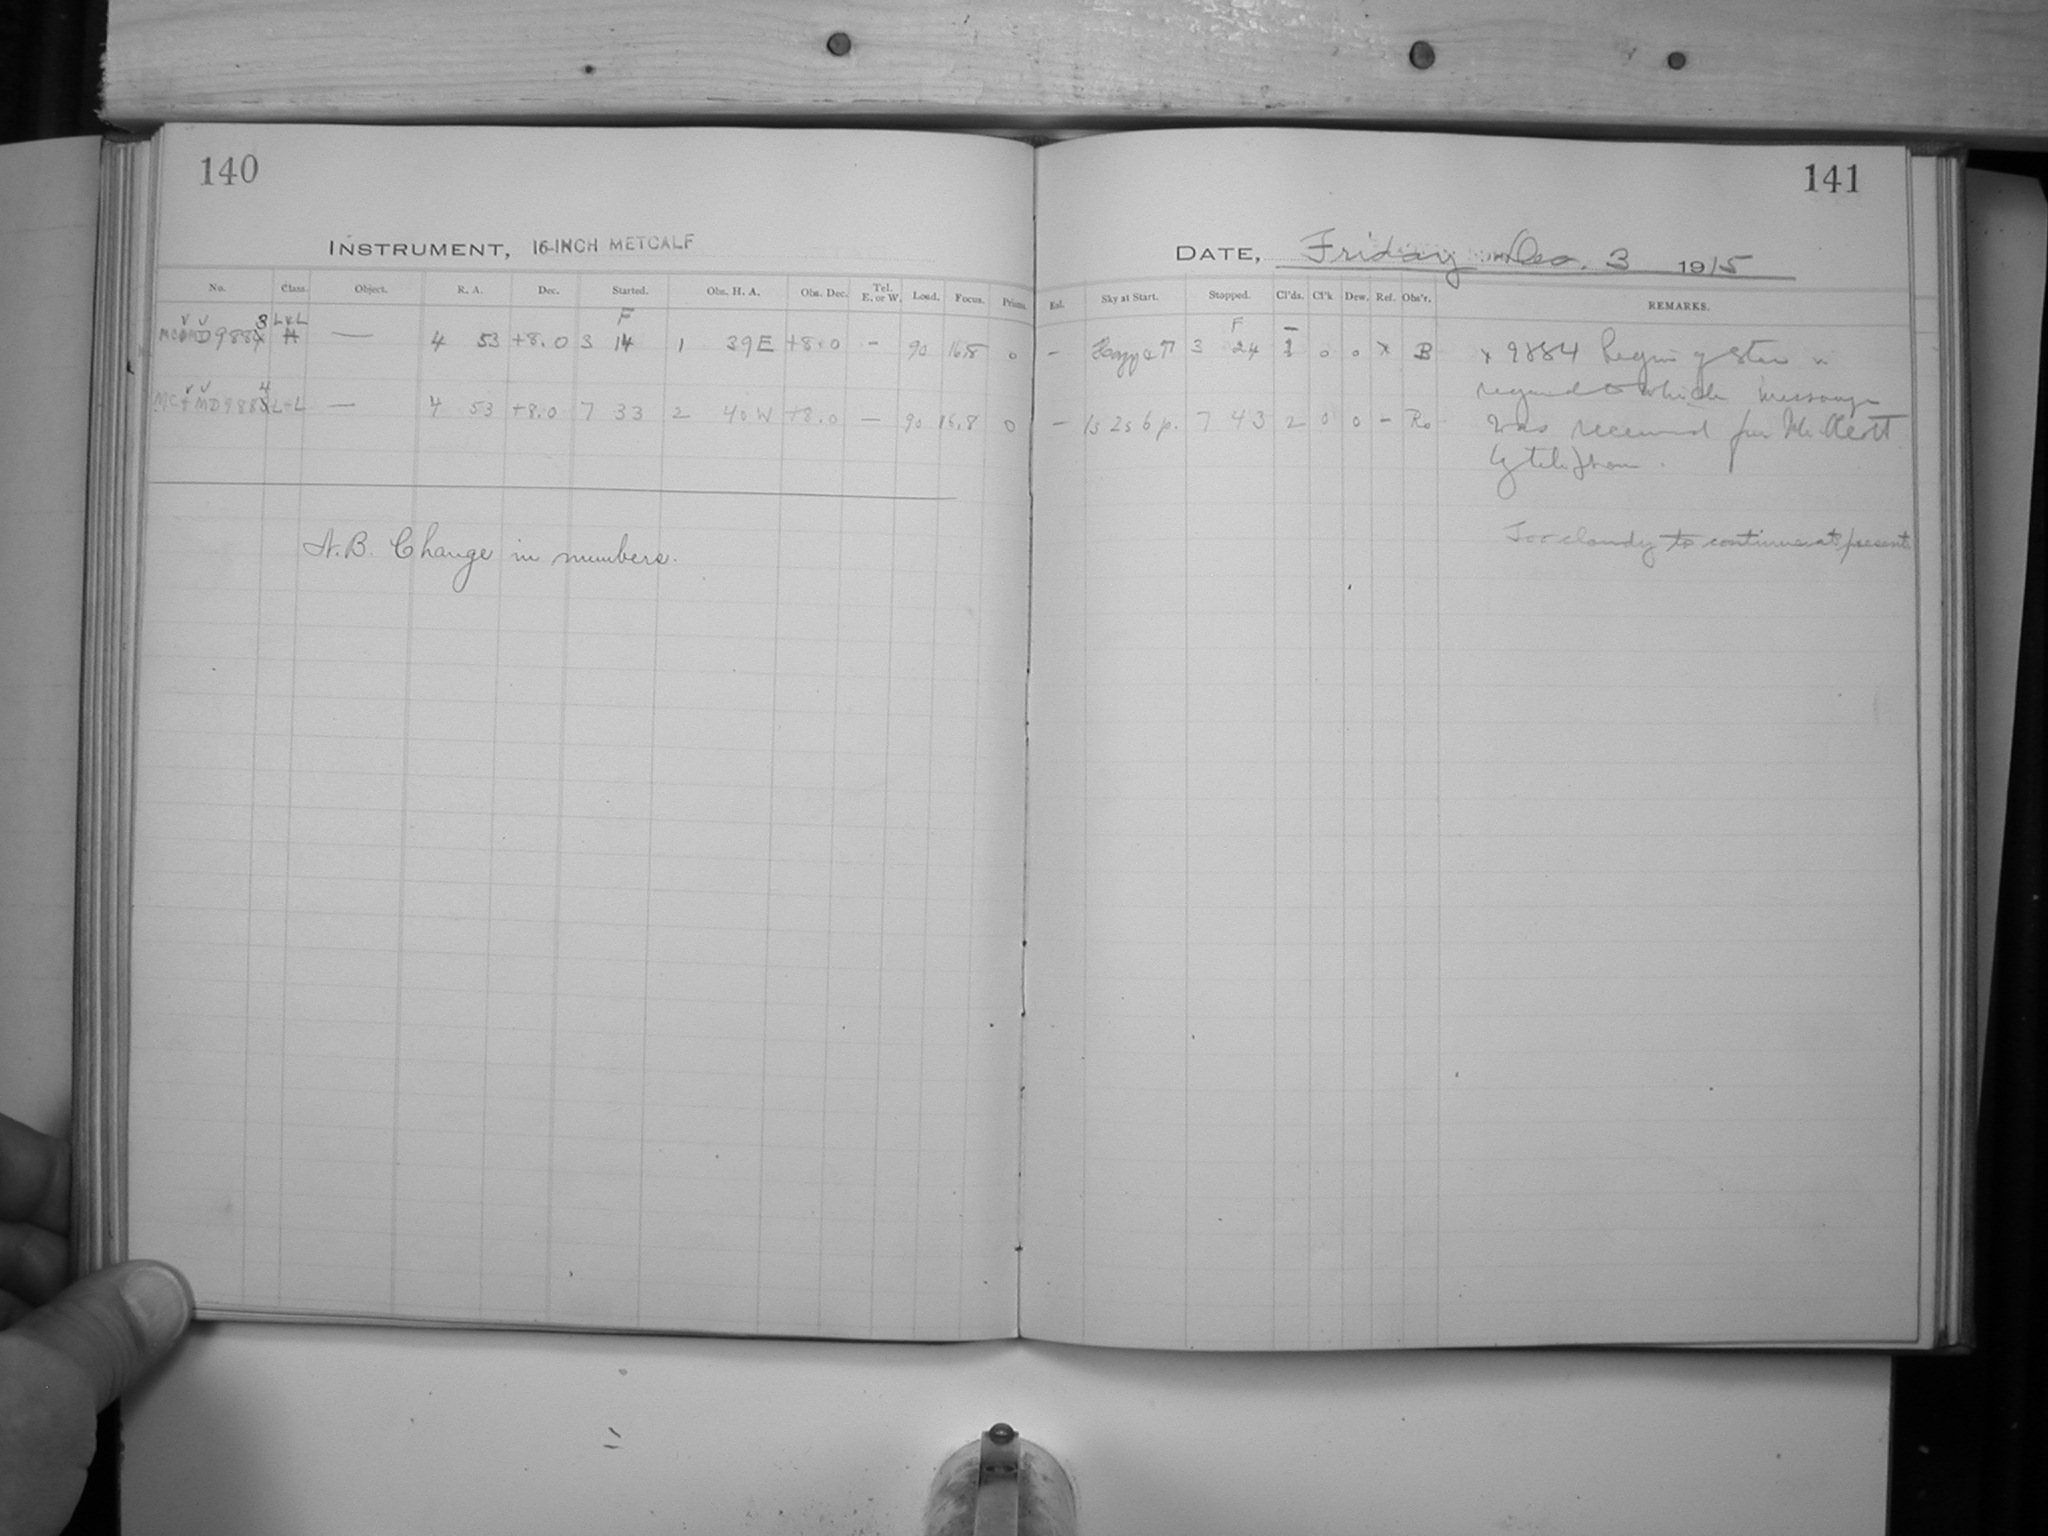 140
141
INSTRUMENT, 16-INCH METCALF
DATE, Friday Dec. 3 1915
No. Class. Object. R. A. Dec. Started. Obs. H. A. Obs. Dec. Tel. E. or W. Load. Focus. Prism. Exl. Sky at Start. Stopped. Cl'ds. Cl'k Dew. Ref. Obs'r. REMARKS.
3 L+L F F
988 — 4 53 +8.0 3 14 1 39 E +8.0 - 90 16.8 0 - 3 24 0 0 x B x 9884 region of
4 regard to which message
MC+MD 988 L+L — 4 53 +8.0 7 33 2 40 W +8.0 — 90 16.8 0 - 1s 2s 6 p. 7 43 2 0 0 - Ro was received
by
N.B. Change in numbers.
Too cloudy to continue at present